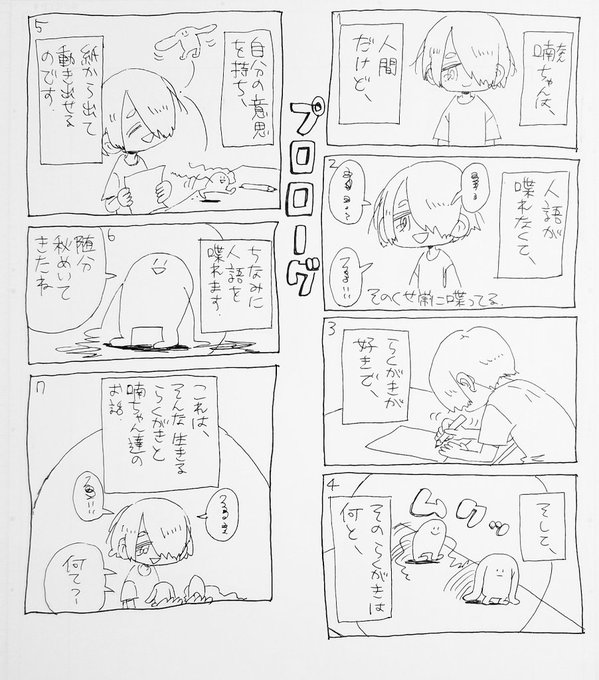 プロローグ
1
喃ちゃんは、
人間
だけど、
2
人語が
喋れなくて、
そのくせ常に喋ってる
3
らくがきが
好きで、
4
そして、
ムクッ
そのらくがきは
何と、
5
自分の意思
を持ち、
紙から出て
動き出せる
のです。
6
ちなみに
人語を
喋れます。
随分
秋めいて
きたね
7
これは、
そんな生きる
らくがきと
喃ちゃん達の
お話
何てっ